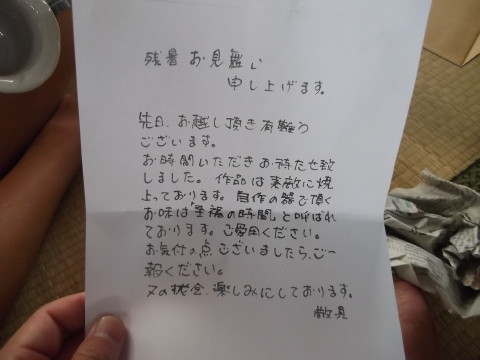 残暑お見舞い
申し上げます。
先日、お越し頂き有難う
ございます。
お時間いただきお待たせ致
しました。作品は素敵に焼
上っております。自作の器で頂く
お味は「至福の時間」と呼ばれ
ております。ご愛用ください。
お気付の点ございましたら、ご一
報ください。
又の機会、楽しみにしております。
敬具